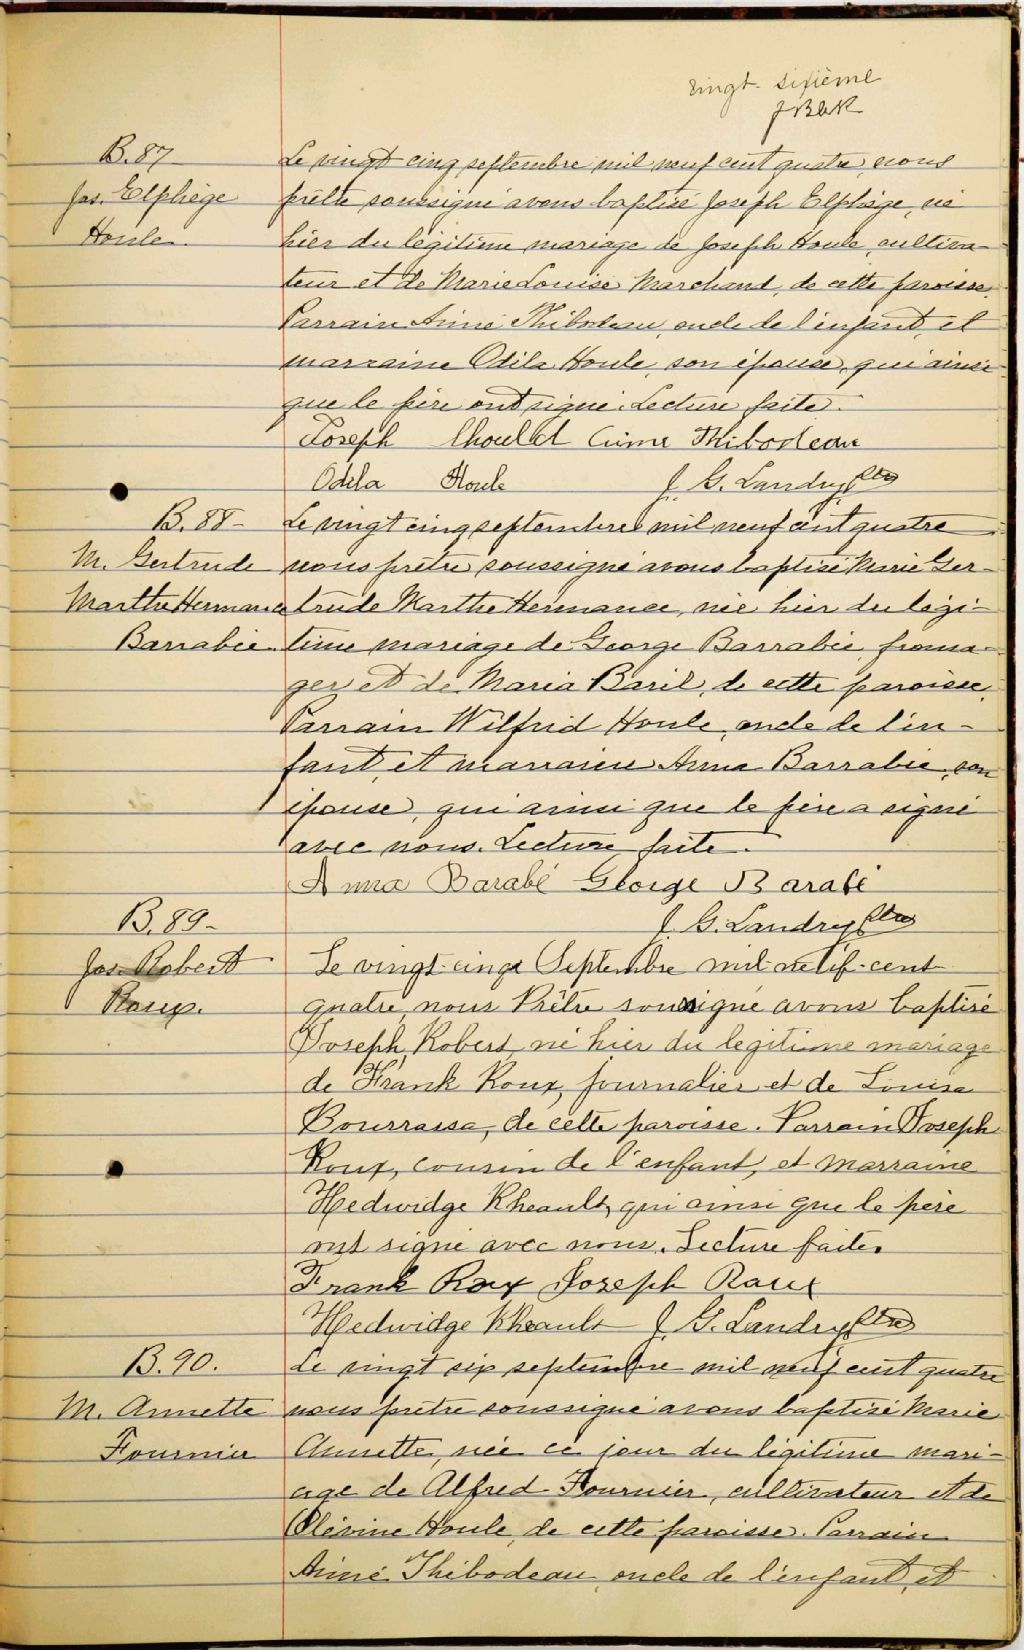 vingt-sixième
JBLR
B.87
Jos. Elphège
Houle.
Le vingt cinq septembre mil neuf cent quatre, nous
prêtre soussigné avons baptisé Joseph Elphège, né
hier du légitime mariage de Joseph Houle, cultiva-
teur et de Marie Louise Marchand, de cette paroisse.
Parrain Aimé Thibodeau, oncle de l'enfant, et
marraine Odila Houle, son épouse, qui ainsi
que le père ont signé. Lecture faite.
Joseph Houle Aimé Thibodeau
Odila Houle J. G. Landry Ptre
B. 88-
M. Gertrude
Marthe Hermance
Barrabée.
Le vingt cinq septembre mil neuf cent quatre
nous prêtre soussigné avons baptisé Marie Ger-
trude Marthe Hermance, née hier du légi-
time mariage de George Barrabée, froma-
ger et de Maria Baril, de cette paroisse.
Parrain Wilfrid Houle, oncle de l'en-
fant, et marraine Anna Barrabée, son
épouse, qui ainsi que le père a signé
avec nous. Lecture faite.
Anna Barabé George Barabé
J. G. Landry Ptre
B. 89-
Jos. Robert
Roux.
Le vingt-cinq Septembre mil-neuf-cent
quatre, nous Prêtre soussigné avons baptisé
Joseph, Robert, né hier du legitime mariage
de Frank Roux, journalier et de Louisa
Bourrassa, de cette paroisse. Parrain Joseph
Roux, cousin de l'enfant, et marraine
Hedwidge Rheault, qui ainsi que le père
ont signé avec nous. Lecture faite.
Frank Roux Joseph Roux
Hedwidge Rheault J. G. Landry Ptre
B. 90.
M. Annette
Fournier
Le vingt six septembre mil neuf cent quatre
nous prêtre soussigné avons baptisé Marie
Annette, née ce jour du légitime mari-
age de Alfred Fournier, cultivateur et de
Olévine Houle, de cette paroisse. Parrain
Aimé Thibodeau, oncle de l'enfant, et